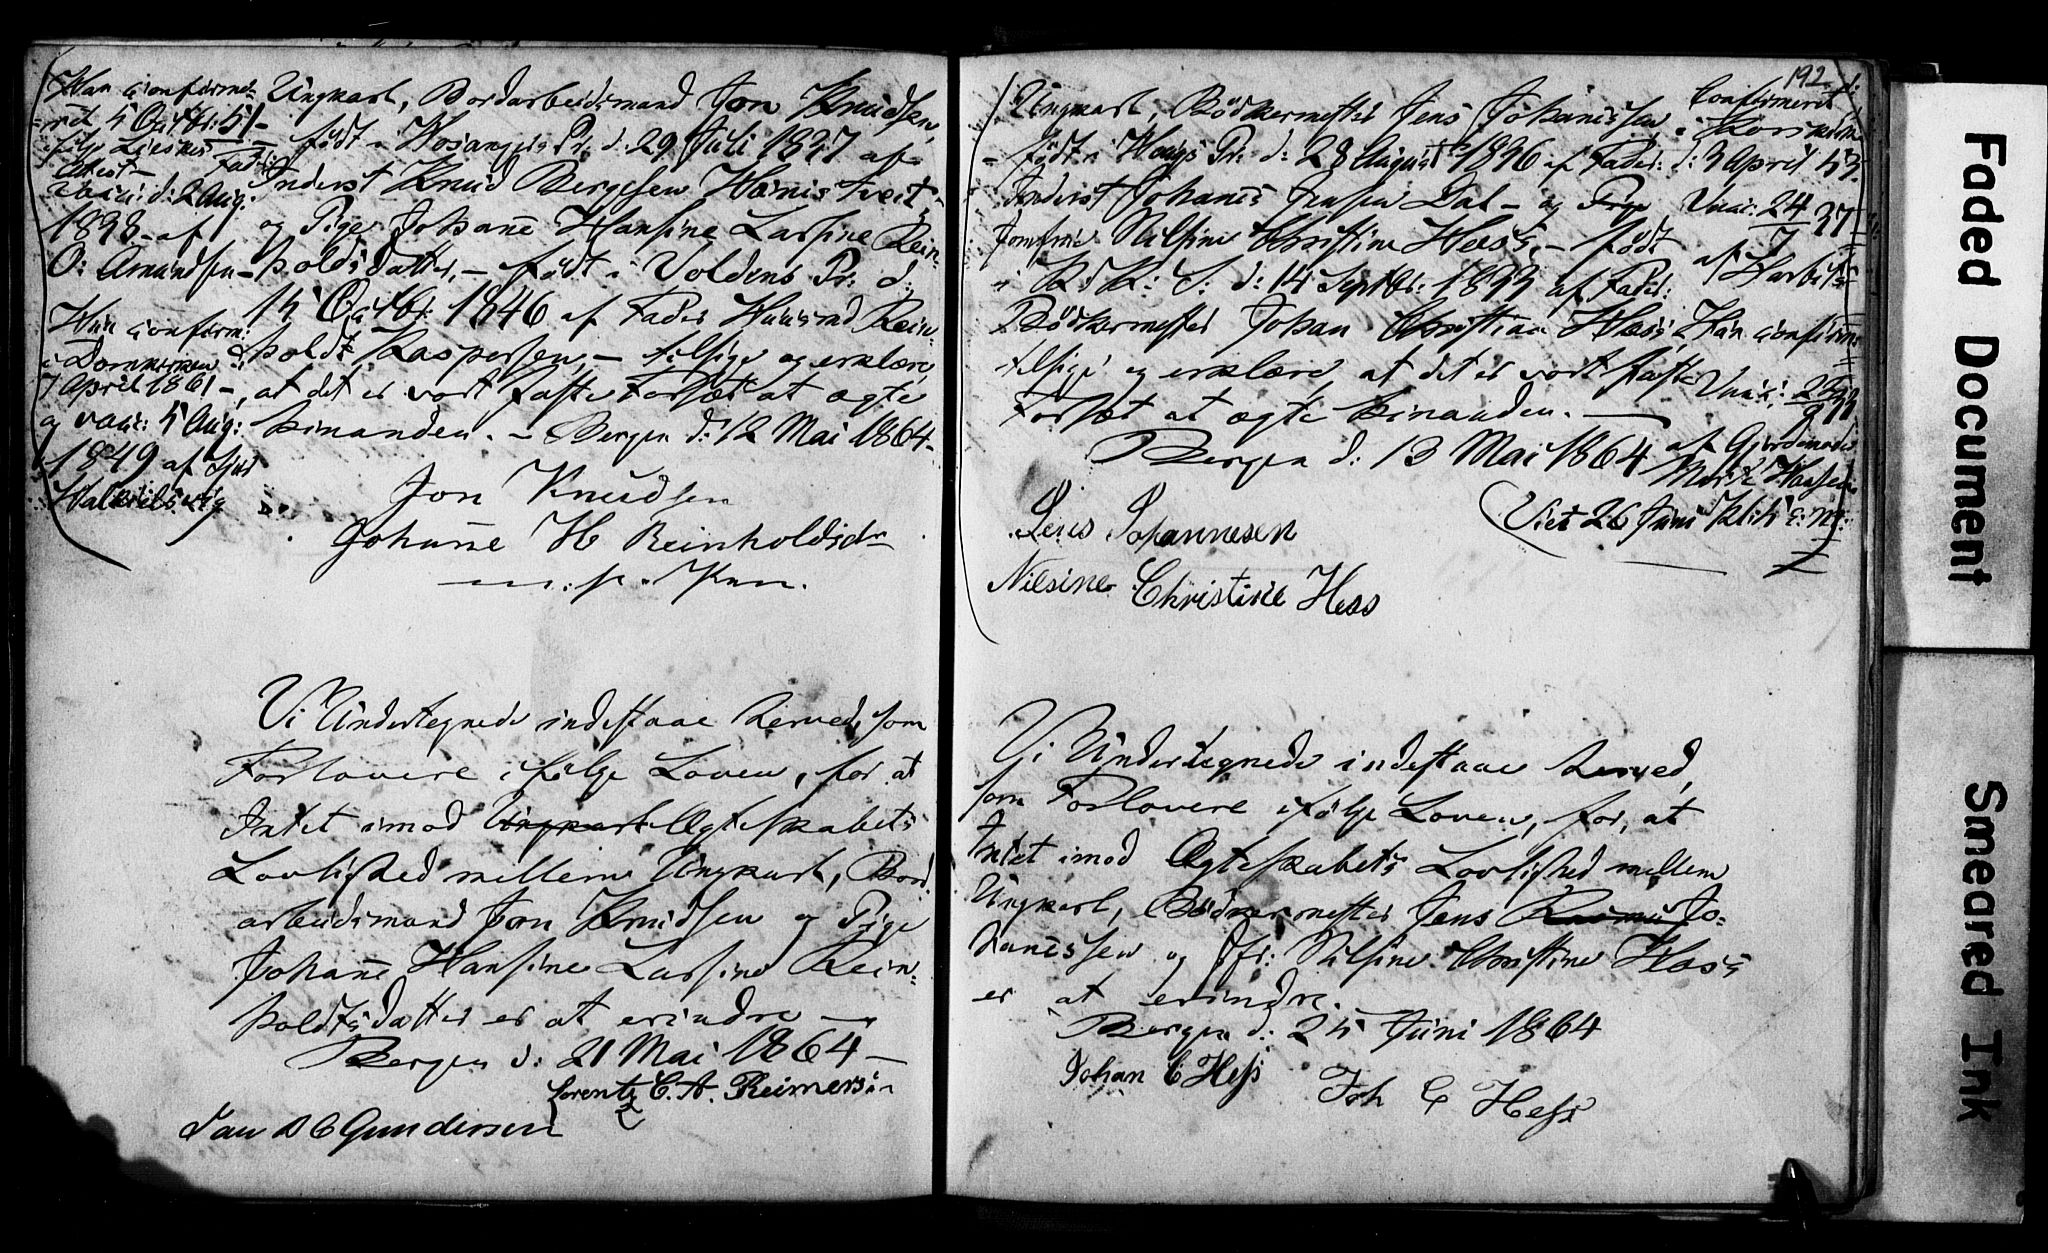 Han conforme-
ret 5 Octbr: 51-
ifölge Lieskes
Attest -
vacc: d: 2 Aug:
1838 - af
O: Amundsen -
Hun conform:
i Domkirken d:
7 April 1861 -,
og vacc: 5 Aug:
1849 af
Ungkarl, Bordarbeidsmand Jon Knudsen,
født i Hosangers Pr: d: 29 Juli 1837 af
Fader: Inderst Knud Bergesen Hannistveit -
og Pige Johane Hansine Larsine Rein-
holdsdatter, - født i Voldens Pr: d:
15 Octbr: 1846 af Fader Huusmd Rein-
holdt Kaspersen, - tilsige og erklære,
at det er vort faste Forsæt at ægte
hinanden. - Bergen d: 12 Mai 1864 -
Jon Knudsen
Johanne H Reinholdsdr
m. p. Pen.
Vi Undertegnede indestaae herved, som
Forlovere ifølge Loven, for at
Intet imod Ungkarl Ægteskabets
Lovlighed mellem Ungkarl, Bord-
arbeidsmand Jon Knudsen og Pige
Johane Hansine Larsine Rein-
holdtsdatter er at erindre -
Bergen d: 21 Mai 1864 -
Lorentz C. A. Reimers
Jan B C Gundersen
192
Ungkarl, Bödkermester Jens Johanessen,
født i Hougs Pr: d: 28 August 1836 af Fader:
Inderst Johanes Jensen Dal - og Pige
Jomfrue Nilsine Christine Hess, - født
i K: K: S: d: 14 Septbr: 1833 af Fader:
Bödkermester Johan Christian Hess,
tilsige og erklære, at det er vort faste
Forsæt at ægte hinanden. -
Bergen d: 13 Mai 1864
Confirmeret
i Korskirken
d: 3 April 53.
Vacc: 24/7 37
af
Hun confirm:
Vacc:
af Gjordemoder
(Viet 26 Juni Kl: 5 E: M:
Jens Johannesen
Nilsine Christine Hess
Vi Undertegnede indestaae herved,
som Forlovere ifølge Loven, for, at
Intet imod Ægteskabets Lovlighed mellem
Ungkarl, Bödkermester Jens Rasmus Jo-
hanessen og Jfr: Nilsine Christine Hess
er at erindre.
Bergen d: 25 Juni 1864
Johan C Hess
Joh C Hess
Faded Document
Smeared Ink